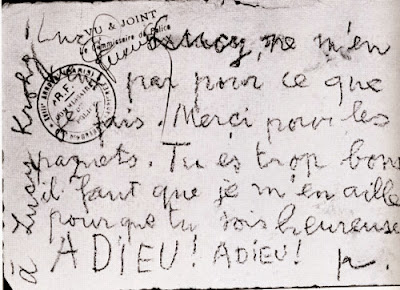 VU & JOINT
Le Commissaire de Police
Lucy, ne m'en
pas pour ce que
fais. Merci pour les
paquets. Tu es trop bonne
il faut que je m'en aille
pour que tu sois heureuse
ADIEU! ADIEU!
à Lucy Krohg
R.F.